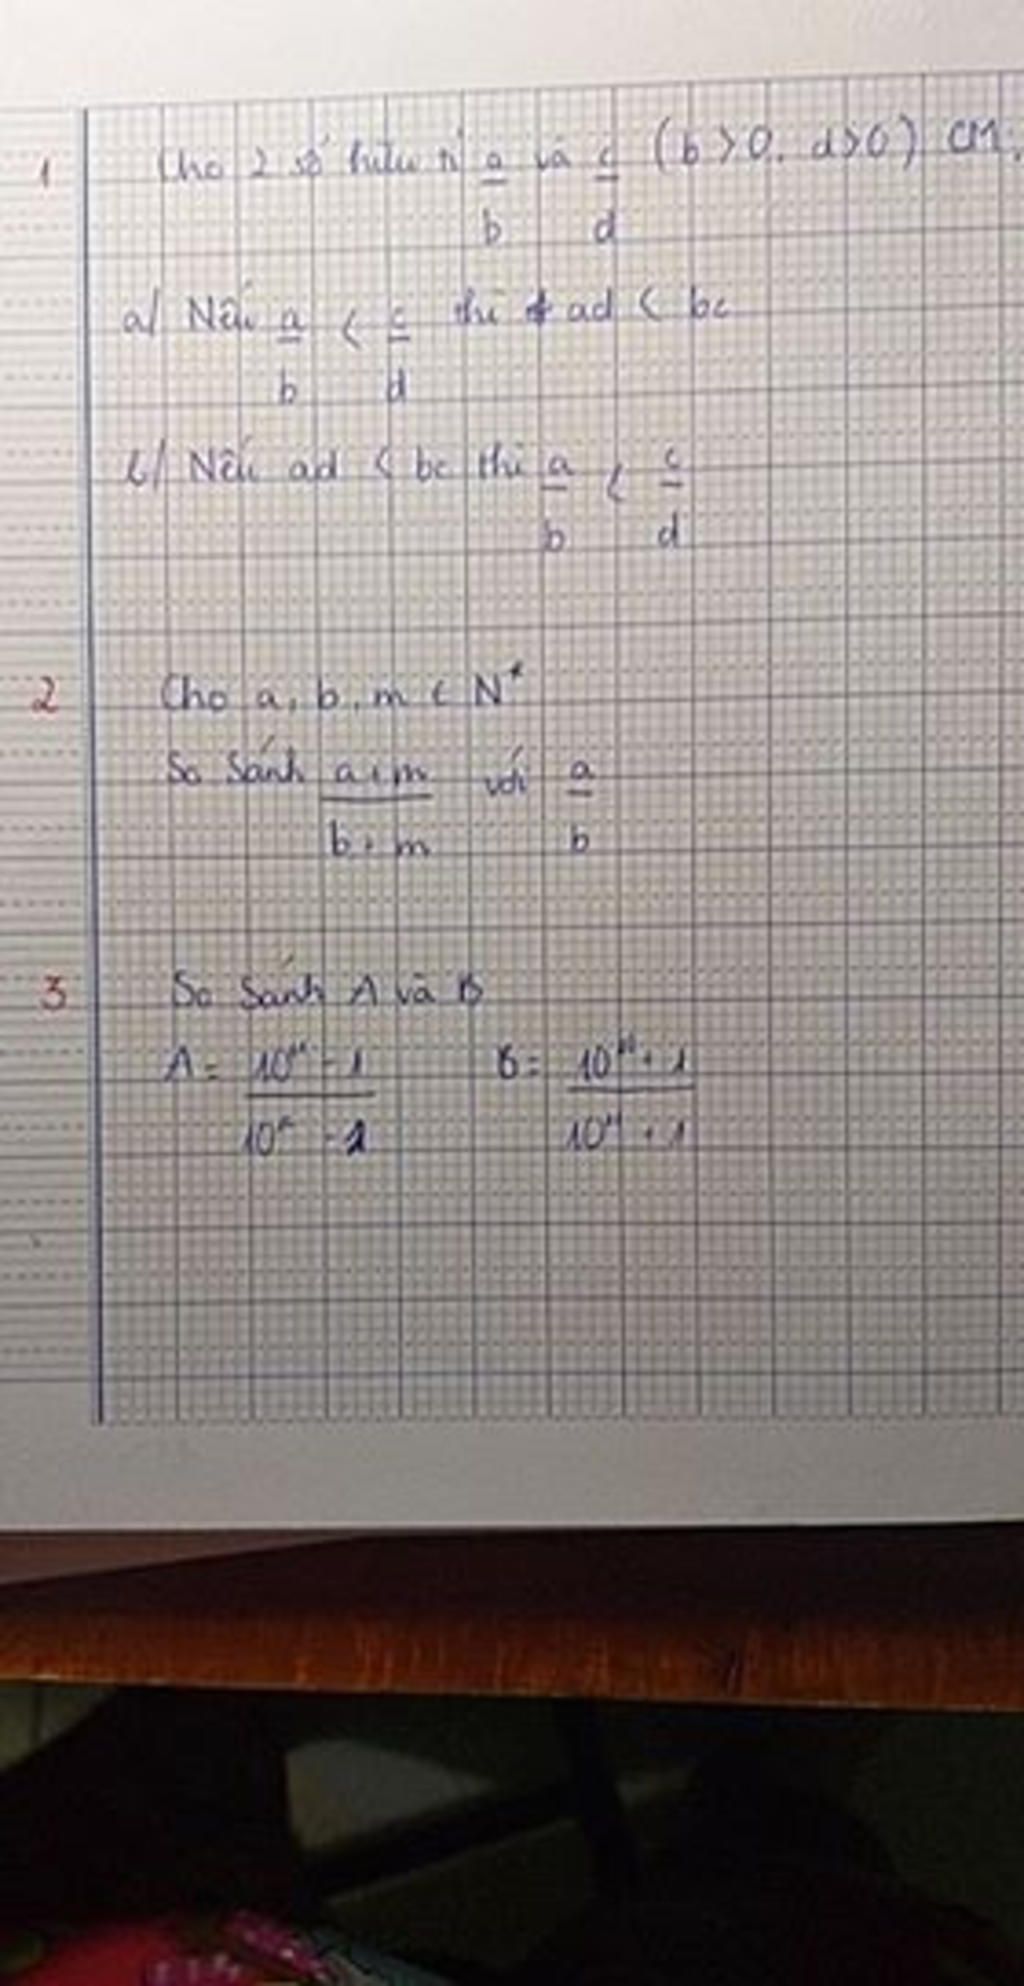 1 Cho 2 số hữu tỉ a/b và c/d (b > 0, d > 0) CM:
a/ Nếu a/b < c/d thì ad < bc
b/ Nếu ad < bc thì a/b < c/d
2 Cho a, b, m ∈ N*
So sánh (a + m)/(b + m) với a/b
3 So sánh A và B
A = (10¹¹ - 1)/(10¹² - 1) B = (10¹⁰ + 1)/(10¹¹ + 1)